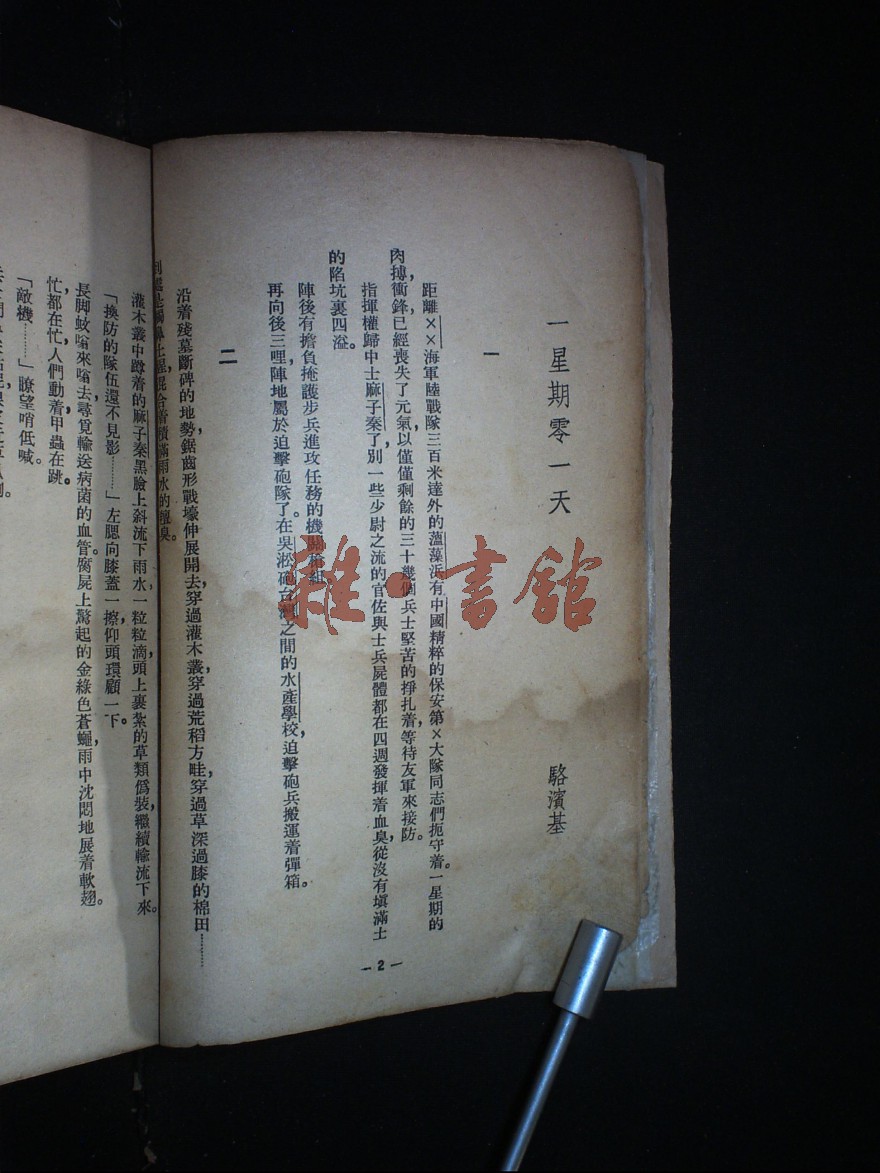 一星期零一天
駱濱基
一
距離××海軍陸戰隊三百米達外的薀藻浜，有中國精粹的保安第×大隊同志們扼守着。一星期的
肉搏，衝鋒，已經喪失了元氣，以僅僅剩餘的三十幾個兵士堅苦的掙扎着，等待友軍來接防。
指揮權歸中士麻子秦了，別一些少尉之流的官佐與士兵屍體都在四週發揮着血臭，從沒有填滿土
的陷坑裏四溢。
陣後有擔負掩護步兵進攻任務的機關槍組。
再向後三哩，陣地屬於迫擊砲隊了。在吳淞砲台灣之間的水產學校，迫擊砲兵搬運着彈箱。
二
沿着殘墓斷碑的地勢，鋸齒形戰壕伸展開去，穿過灌木叢，穿過荒稻方畦，穿過草深過膝的棉田………
混合着積滿雨水的臭。
灌木叢中蹲着的麻子秦，黑臉上斜流下雨水，一粒粒滴，頭上裹紮的草類偽裝繼續輸流下來。
「換防的隊伍還不見影………」左腮向膝蓋一擦，仰頭環顧一下。
長脚蚊嗡來嗡去，尋覓輸送病菌的血管。腐屍上驚起的金綠色蒼蠅，雨中沈悶地展着軟翅。
忙，都在忙，人們動着，甲蟲在跳。
「敵機………」瞭望哨低喊。
雜·書館
－2－